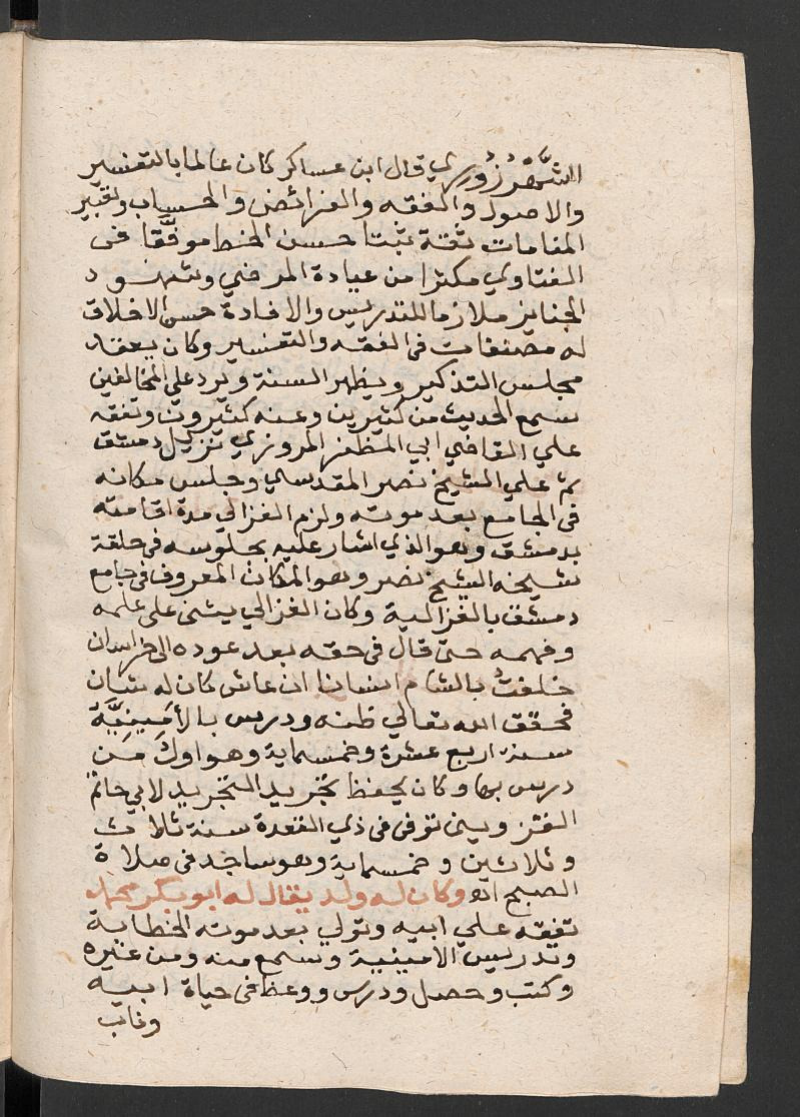 الشَّهْرُزُوري قال ابن عساكر كان عالما بالتفسير
والاصول والفقه والفرائض والحساب وتعبير
المنامات ثقة ثبتا حسن الخط موفَّقا فى
الفتاوي مكثرا من عيادة المرضي وشهود
الجنايز ملازما للتدريس والافادة حسن الاخلاق
له مصنفات فى الفقه والتفسير وكان يعقد
مجلس التذكير ويظهر السنة ويرد علي المخالفين
سمع الحديث من كثيرين وعنه كثيرون وتفقه
علي القاضي ابي المظفر المروزي نزيل دمشق
ثم علي الشيخ نصر المقدسي وجلس مكانه
فى الجامع بعد موته ولزم الغزالي مدة اقامته
بدمشق وهو الذي اشار عليه بجلوسه فى حلقة
شيخه الشيخ نصر وهو المكان المعروف فى جامع
دمشق بالغزالية وكان الغزالي يثنى على علمه
وفهمه حتى قال فى حقه بعد عوده الى خراسان
خلفتُ بالشام انسانا ان عاش كان له شان
فحقق الله تعالي ظنه ودرس بالأمِينِيَّة
سنة اربع عشرة وخمسماية وهو اول من
درس بها وكان يحفظ تجريد التجريد لابي حاتم
القزوينى توفى فى ذي القعدة سنة ثلاث
وثلاثين وخمسماية وهو ساجد فى صلاة
الصبح اه وكان له ولد يقال له ابو بكر محمد
تفقه علي ابيه وتولي بعد موته الخطابة
وتدريس الامينية وسمع منه ومن غيره
وكتب وحصل ودرس ووعظ فى حياة ابيه
وغاب